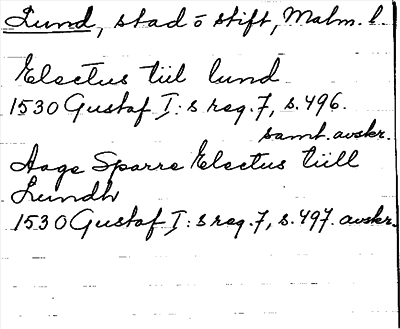 Lund, stad o stift, Malm. l.
Electus tiil lund
1530 Gustaf I:s reg. 7, s. 496.
samt. avskr.
Aage Sparre Electus tiill
Lundh
1530 Gustaf I:s reg. 7, s. 497. avskr.